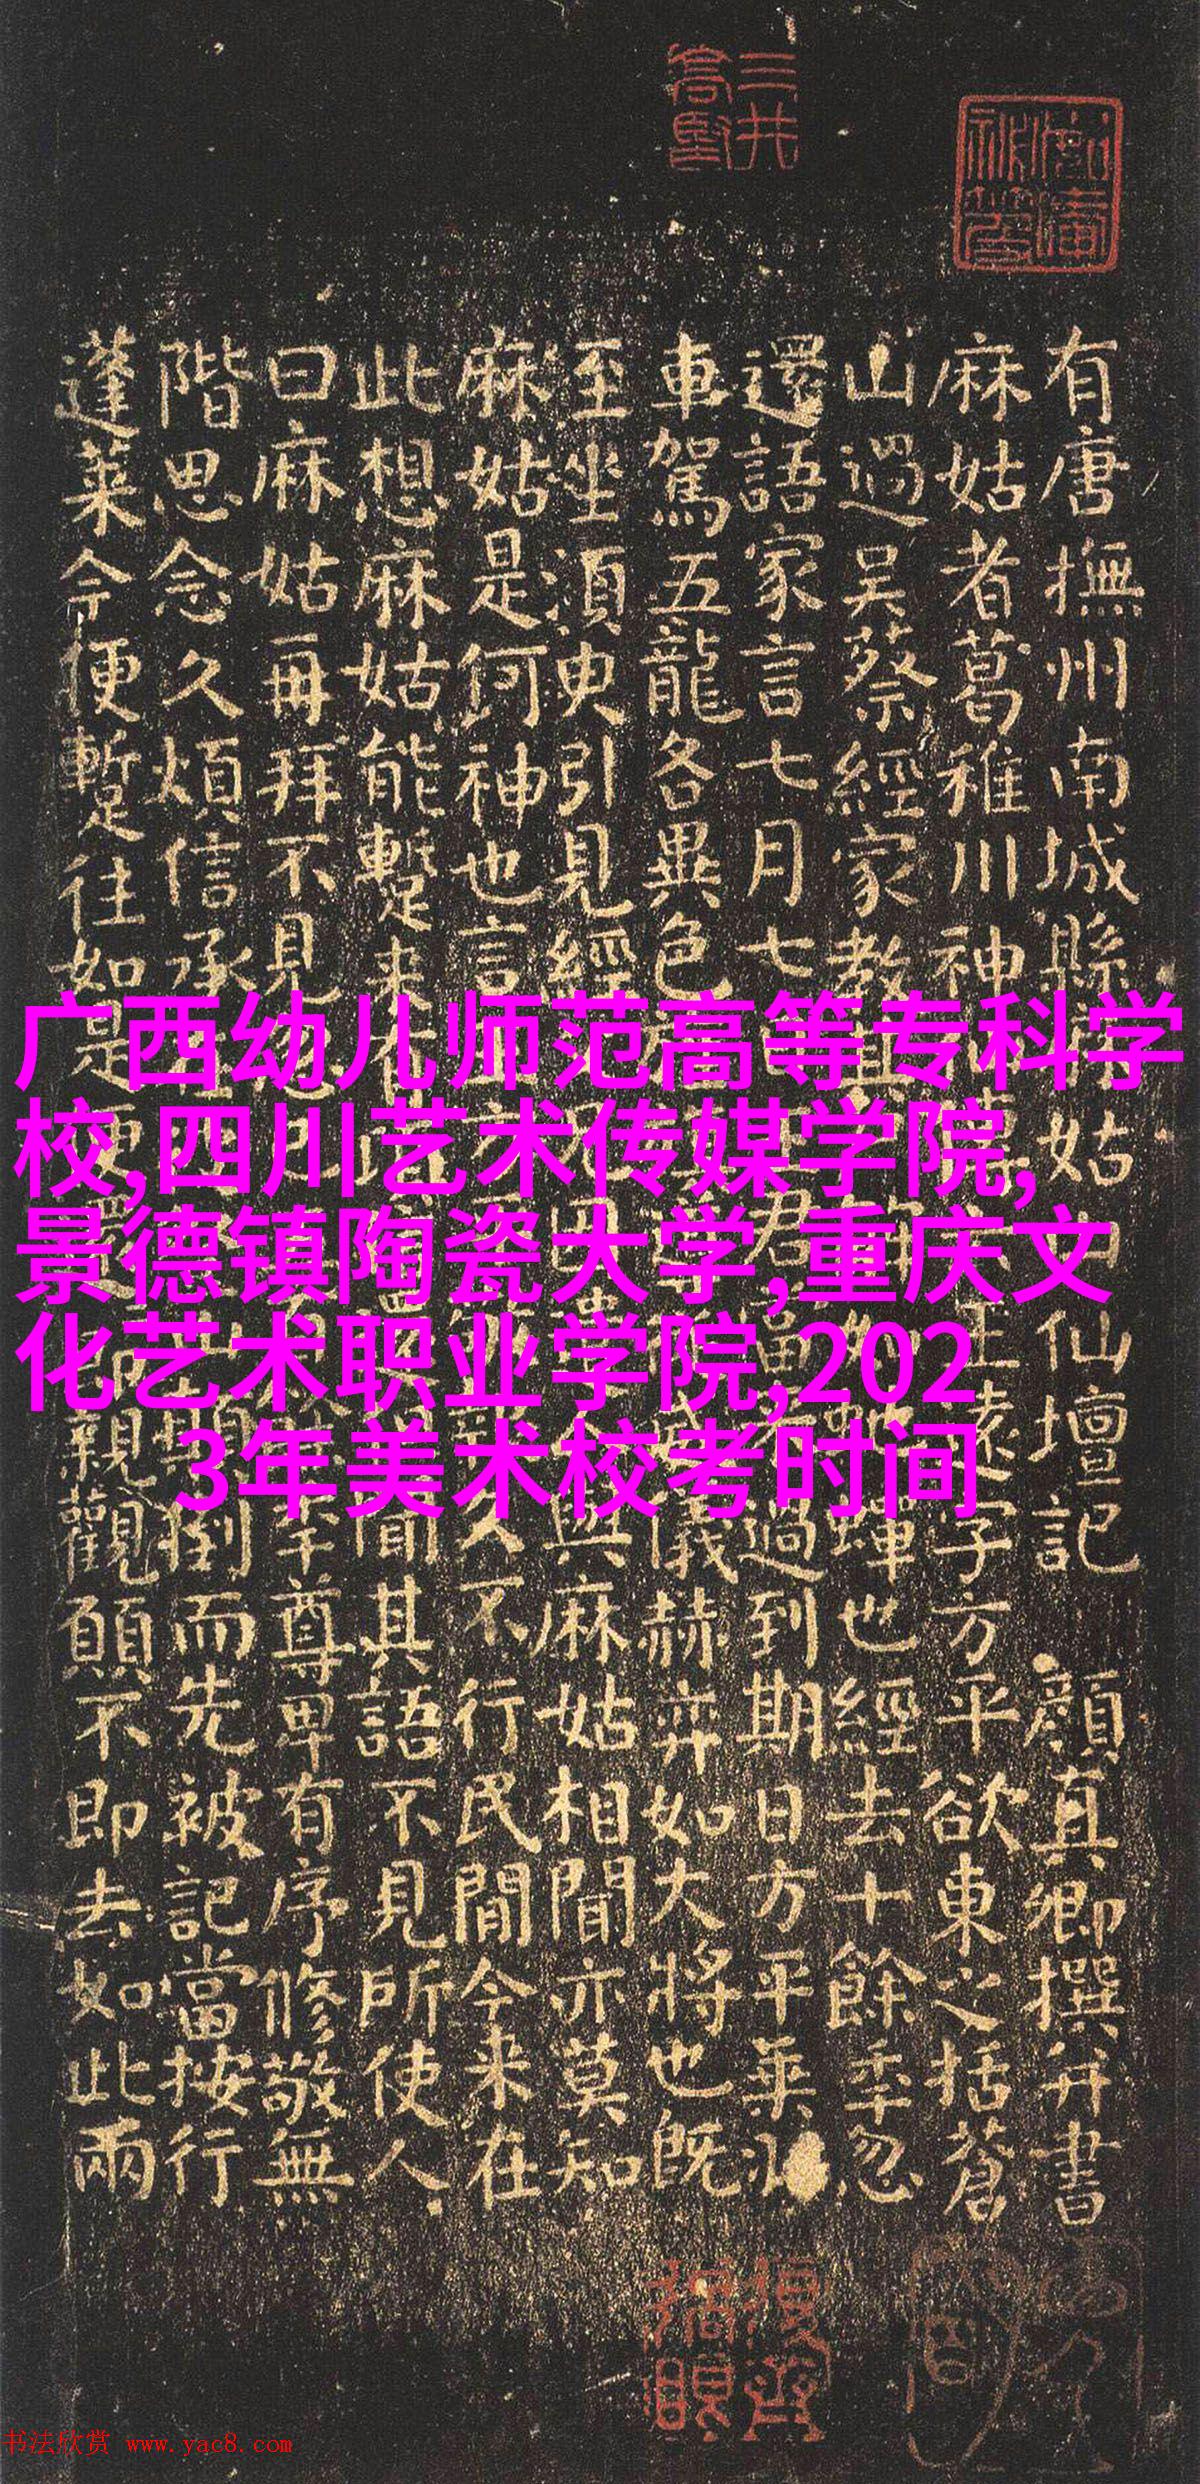 有唐撫州南城縣姑山仙壇記 顏真卿撰并書
麻姑者葛稚川神王遠字方平欲東之括蒼
山過吳蔡經家教其蟬也經去十餘年忽
還語家言七月七君當過到期日方平乘
車駕五龍各異色威儀赫弈如大將也既
至坐須臾引見經與麻姑相聞亦莫知
麻姑是何神也言久不行民間今来在
此想麻姑能蹔来聞其語不見所使人
曰麻姑再拜不見年尊卑有序修敬無
階思念久煩信承倒而先被記當按行
蓬莱今便蹔往如是便親觀願不即去如此兩
广西幼儿师范高等专科学
校,四川艺术传媒学院,
景德镇陶瓷大学,重庆文
化艺术职业学院,202
3年美术校考时间
书法欣赏 www.yac8.com